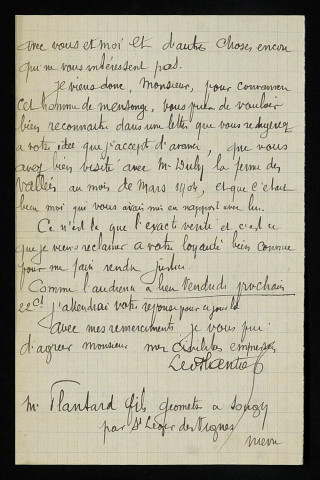 avec vous et moi et d'autres choses encore
qui ne vous intéressent pas.
Je viens donc, Monsieur, pour convaincre
cet homme de mensonge, vous prier de vouloir
bien reconnaitre dans une lettre que vous redigerez
a votre idee que j'accepte d'avance, que vous
avez bien visité avec Mr Duly la ferme des
Vallées au mois de Mars 1904, et que c'etait
bien moi qui vous avais mis en rapport avec lui.
Ce n'est là que l'exacte verité et c'est ce
que je viens reclamer a votre loyauté bien connue
pour me faire rendre justice.
Comme l'audience a lieu Vendredi prochain
22 ct j'attendrai votre reponse pour ce jour là
avec mes remerciments je vous prie
d'agreer monsieur mes civilités empressées
Mr Plantard fils geometre a
par St Leger des Vignes
Nievre